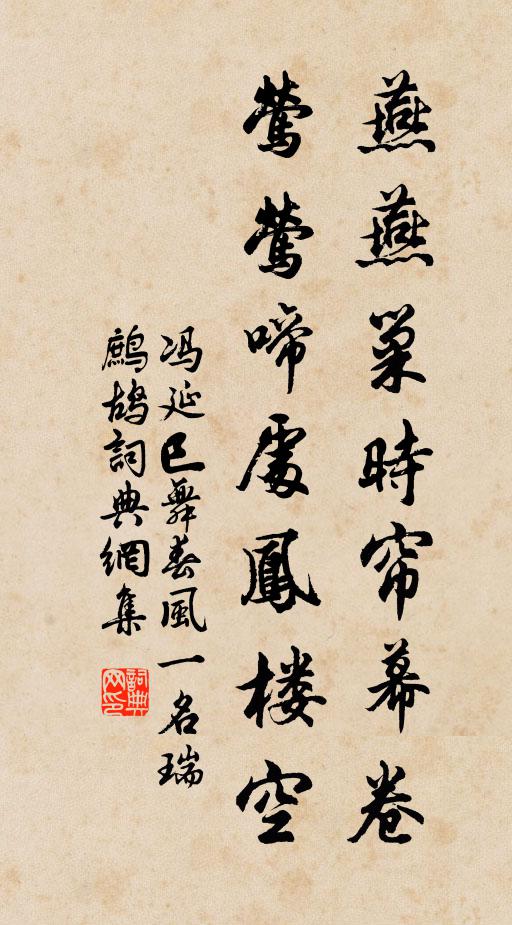 燕燕巢時帘幕卷
鶯鶯啼處鳳楼空
冯延巳舞春風一名瑞
鷓鴣詞典網集
詞典网印